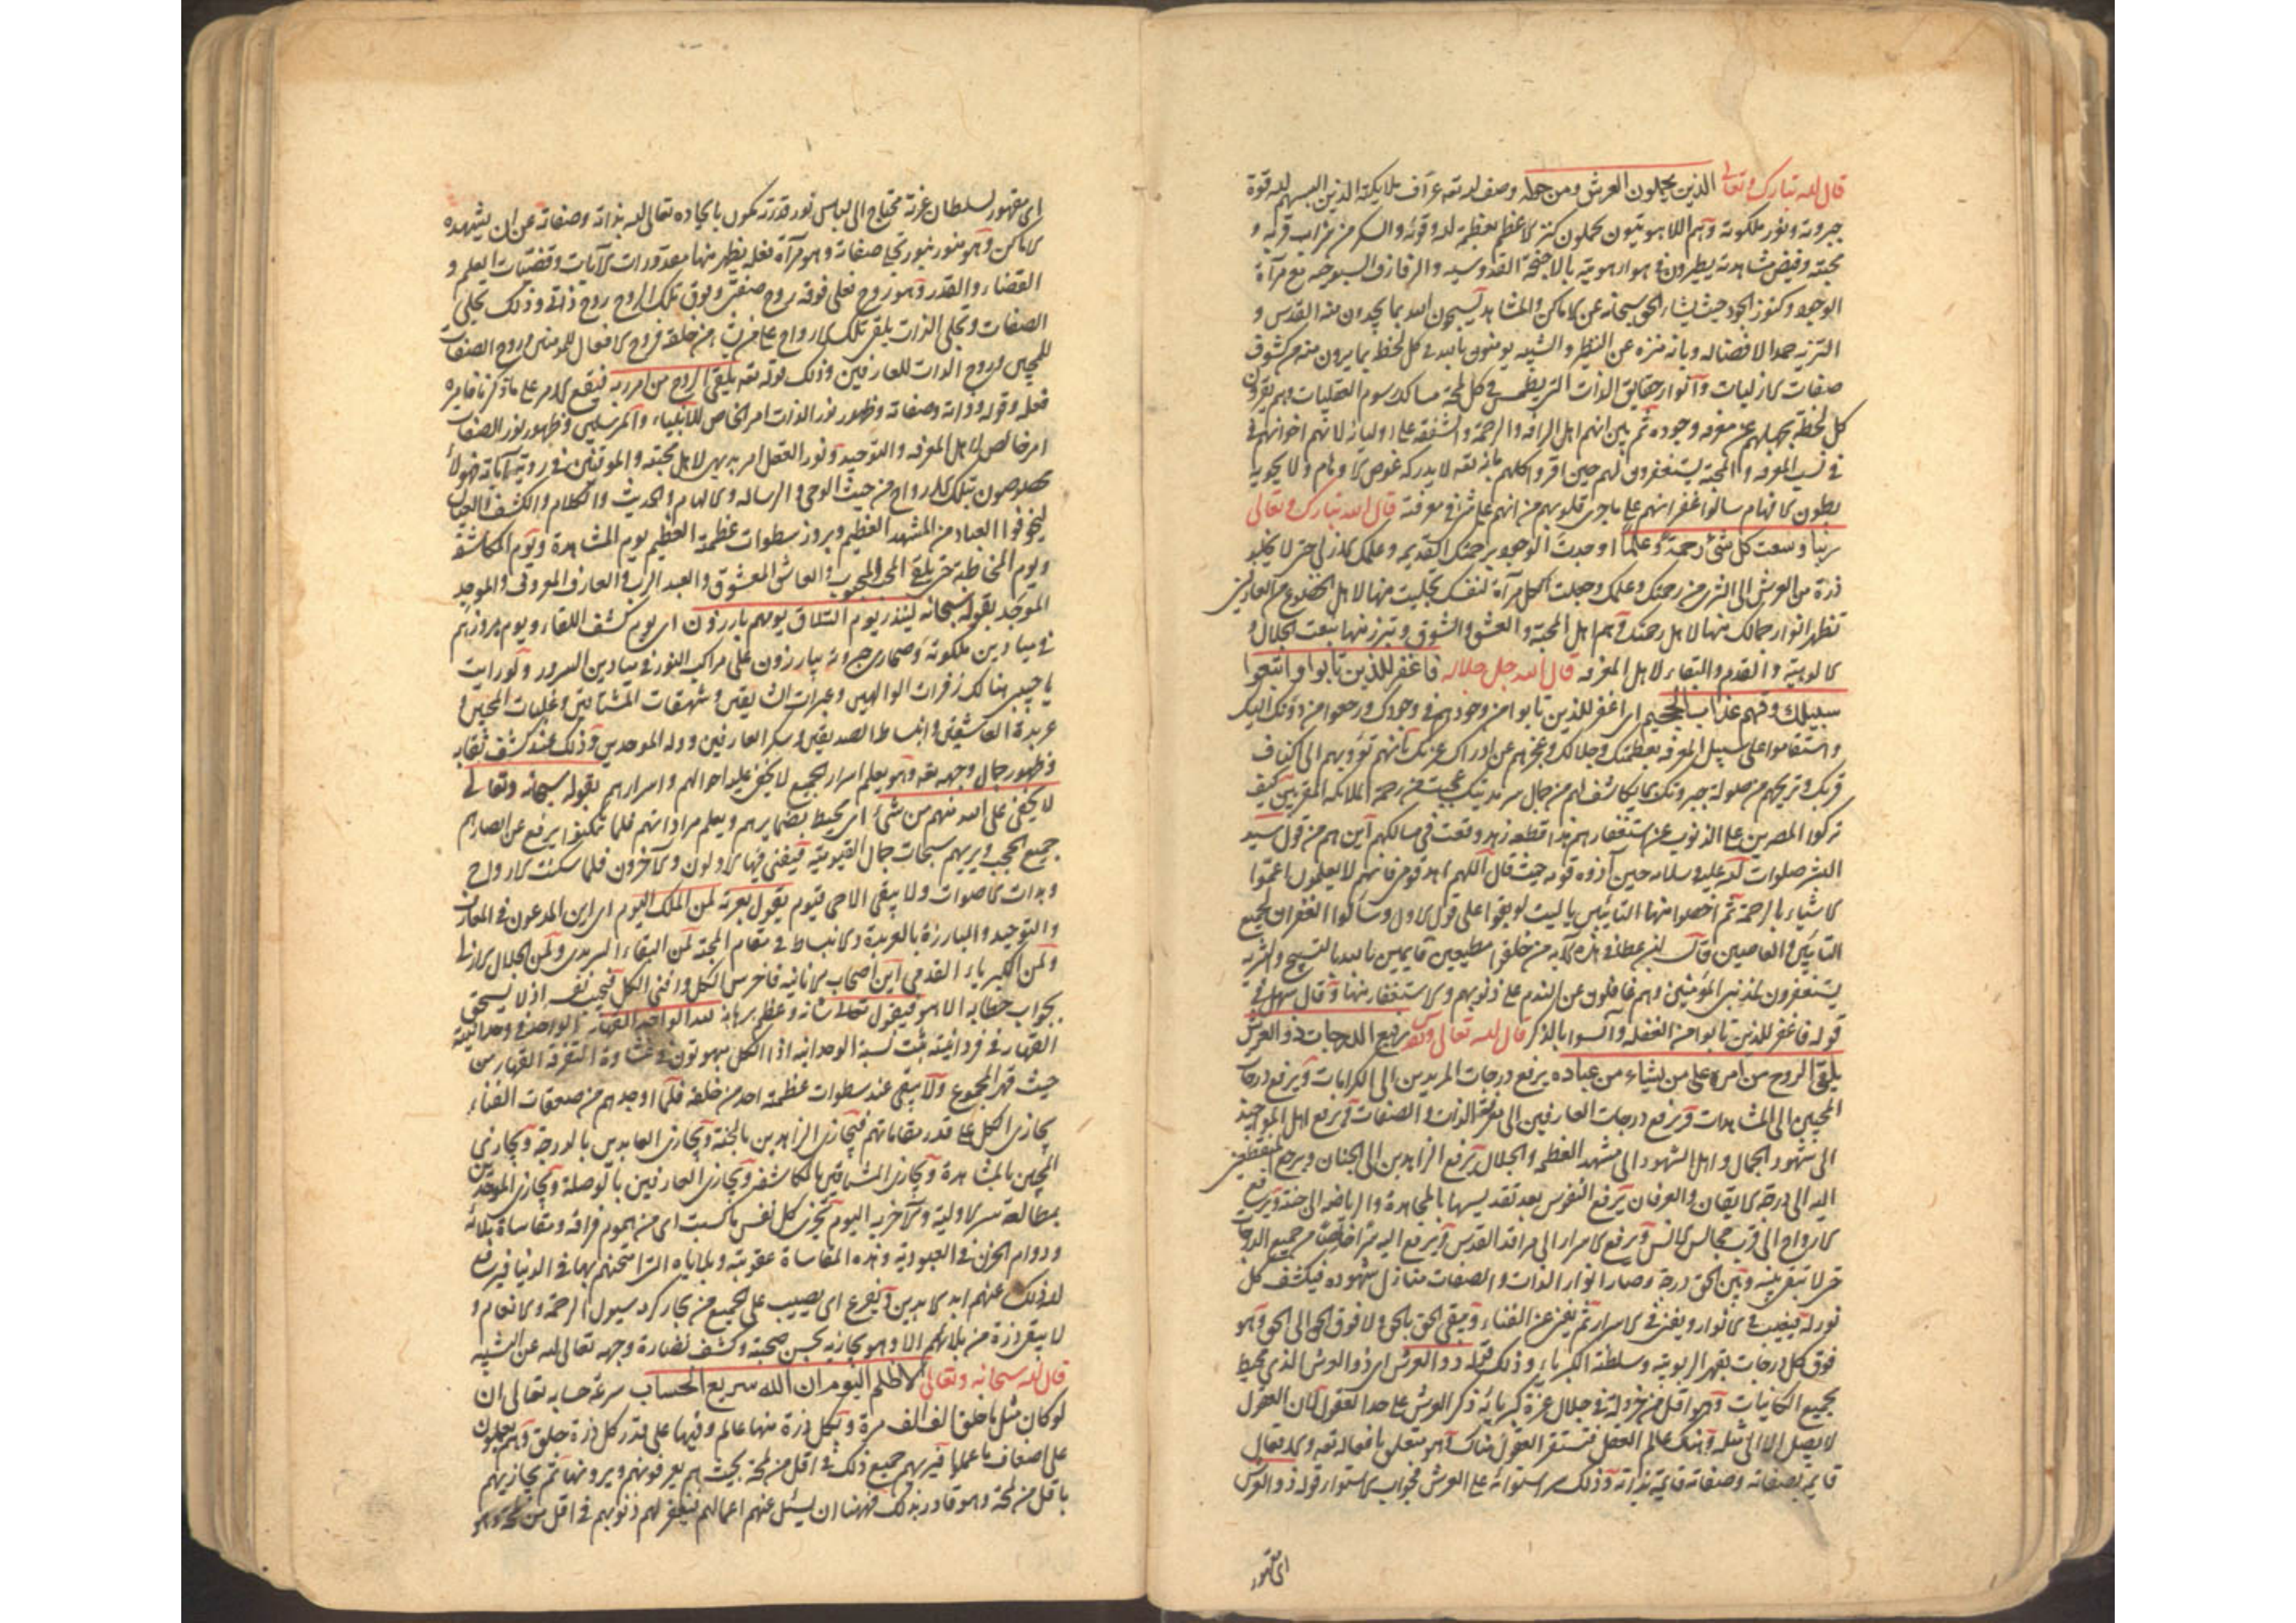 قال الله تبارك وتعالى الذين يحملون العرش ومن حوله وصف الله تعه عزاف ملايكة الذين البسهم الله قوة
جبروته ونور ملكوته وهم اللاهوتيون يحملون كنز الاعظم بعظمة الله وقوته والسكر من شراب قربه و
محبته وفيض مشاهدته يطيرون في هواء هويته بالاجنحة القدوسية والرفارف السبوحية مع مرآة
الوجود وكنوز الجود حيث يشاء الحق سبحانه عن الاماكن والمشاهد يسبحون الله بما يجدون منه القدس و
التنزيه حمدا لافضاله وبانه منزه عن النظير والشبيه يومنون بالله في كل لحظة بما يرون منه من كشوف
صفات الازليات وانوار حقايق الذات التي يطمس في كل لمحة مسالك رسوم العقليات وهم يقرون
كل لحظة بجهلهم عن معرفه وجوده ثم بين انهم اهل الرافة والرحمة والشفقة على اوليائه لانهم اخوانهم
في نسب المعرفه والمحبة يستغفرون لهم حين اقروا كلهم بانه تعه لا يدركه غوص الاوهام ولا يحويه
بطون الافهام سالوا غفرانهم على ماجرى قلوبهم من انهم على شئ في معرفته قال الله تبارك وتعالى
ربنا وسعت كل شئ رحمة وعلما اوجدت الوجود برحمتك القديمة وعلمك الازلي حتى لا يخلو
ذرة من العرش الى الثرى من رحمتك وعلمك وجعلت الكل مرآة لنفسك تجليت منها لاهل الخضوع من العارفين
تظهر انوار جمالك منها لاهل رحمتك وهم اهل المحبة والعشق والشوق وتبرز منها نعت الجلال و
الالوهية والقدم والبقاء لاهل المعرفه قال الله جل جلاله فاغفر للذين تابوا واتبعوا
سبيلك وقهم عذاب الجحيم اى اغفر للذين تابوا من وجودهم في وجودك ورجعوا من دونك اليك
واستقاموا على سبيل المعرفه بعظمتك وجلالك وعجزهم عن ادراك عزتك بانهم تؤويهم الى اكناف
قربك وتريحهم من صولة جبروتك بما يكاشف لهم من جمال سرمديتك عجبت من رحمة الملائكه المقربين كيف
تركوا المصرين على الذنوب عن استغفارهم هذا قطعة زهد وقعت في مسالكهم اين هم من قول سيد
البشر صلوات الله عليه وسلامه حين آذوه قومه حيث قال اللهم اهد قومي فانهم لا يعلمون عموا
الاشياء بالرحمة ثم اخصوا منها التائبين يا ليت لو بقوا على قول الاول وسألوا الغفران لجميع
التائبين والعاصين قال ابن عطا في هذه الآيه من خلقه مطيعين قايمين بالله بالتسبيح والتنزيه
يستغفرون لمذنبى المؤمنين وهم غافلون عن الندم على ذنوبهم والاستغفار منها وقال سهل في
قوله فاغفر للذين تابوا من الغفله وآنسوا بالذكر قال الله تعالى وتقدس رفيع الدرجات ذو العرش
يلقى الروح من امره على من يشاء من عباده يرفع درجات المريدين الى الكرامات ويرفع درجات
المحبين الى المشاهدات ويرفع درجات العارفين الى معرفة الذات والصفات ويرفع اهل المواجيد
الى شهود الجمال واهل الشهود الى مشهد العظمة والجلال يرفع الزاهدين الى الجنان ويرجع المنقطعين
اليه الى درجة الايقان والعرفان يرفع النفوس بعد تقديسها بالمجاهدة والرياضة الى جنته ويرفع
الارواح الى قرب مجالس الانس ويرفع الاسرار الى مراقد القدس ويرفع اليه من جميع الدرجات
حتى لا تبقى بينه وبين الحق درجة وصار انوار الذات والصفات منازل شهوده فيكشف كل
نور له فيغيب في الانوار ويفنى في الاسرار ثم يفنى عن الفناء ويبقى الحق بالحق ولا فوق الحق الى الحق وهو
فوق كل درجات بقهر الربوبية وسلطنة الكبرياء وذلك قوله ذو العرش اى ذو العرش الذي محيط
بجميع الكائنات وهو اقل من خردلة في جلال عزة كبريائه ذكر العرش على حد العقول لان العقول
لا يصل الا الى مثله وهناك عالم العقل فتستقر العقول هناك وهو متعلق بافعاله تعه والله تعالى
قايم بصفاته وصفاته قايمة بذاته وذلك سر استوائه على العرش فجواب الاستواء قوله ذو العرش
اى مقهور
اى مقهور لسلطان عزته محتاج الى لباس نور قدرته يكون بايجاده تعالى الله بذاته وصفاته عن ان يشهده
الاماكن وهو منور بنور تجلى صفاته وهو مرآة فعله يظهر منها مقدورات الآيات وقضيات العلم و
القضاء والقدر وهو روح فعلى فوقه روح صفتى وفوق تلك الروح روح ذاتى وذلك تجلى
الصفات وتجلى الذات يلقى تلك الارواح على من يشاء من خلقه فروح الافعال للمومنين وروح الصفات
للمحبين وروح الذات للعارفين وذلك قوله تعه يلقى الروح من امر ربه فيقع الامر على ما ذكرنا فامره
فعله وقوله وذاته وصفاته وظهور نور الذات امر الخاص للانبياء والمرسلين وظهور نور الصفات
امر خالص لاهل المعرفه والتوحيد ونور العقل امر بديهى لاهل محبته والموقنين في روية آياته فهولآ
مخصوصون بتلك الارواح من حيث الوحى والرساله والالهام والحديث والكلام والكشف والعيان
ليخوفوا العباد من المشهد العظيم وبروز سطوات عظمة العظيم يوم المشاهدة ويوم المكاشفة
ويوم المخاطبة حتى يلقى المحب المحبوب والعاشق المعشوق والعبد الرب والعارف المعروف والموحد
الموحَّد بقوله سبحانه لينذر يوم التلاق يوم هم بارزون اى يوم كشف اللقاء ويوم بروزهم
في ميادين ملكوته وصحارى جبروته يبارزون على مراكب النور في ميادين السرور ولو رايت
يا حبيبى هنالك زفرات الوالهين وعبرات الشايقين وشهقات المشتاقين وغلبات المحبين و
عربدة العاشقين وانبساط الصديقين وسكر العارفين ووله الموحدين وذلك عند كشف نقابه
وظهور جمال وجهه تعه وهو يعلم اسرار الجميع لا يخفى عليه احوالهم واسرارهم بقوله سبحانه وتعالى
لا يخفى على الله منهم من شئ اى محيط بضمايرهم ويعلم مراداتهم فلما تمكنوا يرفع عن ابصارهم
جميع الحجب ويريهم سبحات جمال القيومية فيفنى فيها الاولون والآخرون فلما سكنت الارواح
وهدات الاصوات ولا يبقى الا حى قيوم يقول بعزته لمن الملك اليوم اى اين المدعون في المعارف
والتوحيد والمبارزة بالعربدة والانبساط في مقام المحبة لمن البقاء السرمدى ولمن الجلال الازلى
ولمن الكبرياء القدمى اين اصحاب الانانية فاخرس الكل وافنى الكل فيجيب نفسه اذ لا يستحق
بجواب خطابه الا هو فيقول تعالى شانه وعظم برهانه لله الواحد القهار الواحد في وحدانيته
القهار في فردانيته يثبت نسبة الوحدانيه اذ الكل مبهوتون في غشاوة التفرقة القهار من
حيث قهر الجموع ولا يبقى عند سطوات عظمته احد من خلقه فلما اوجدهم من صعقات الفناء
يجازى الكل على قدر مقاماتهم فيجازى الزاهدين بالجنة ويجازى العابدين بالدرجة ويجازى
المحبين بالمشاهدة ويجازى المشتاقين بالمكاشفة ويجازى العارفين بالوصلة ويجازى الموحدين
بمطالعة سر الاولية والآخرية اليوم تجزى كل نفس بما كسبت اى من هموم فراقه ومقاساة بلائه
ودوام الحزن في العبودية وهذه المقاساة عقوبته وبلاياه التى امتحنهم بها في الدنيا فيرفع
الله ذلك عنهم ابد الابدين ويفرغ اى يصيب على الجميع من بحار كرمه سيول الرحمة والانعام و
لا يبقى ذرة من بلائهم الا وهو يجازيه بحسن صحبته وكشف نضارة وجهه تعالى الله عن الشبيه
قال الله سبحانه وتعالى لا ظلم اليوم ان الله سريع الحساب سرعة حسابه تعالى ان
لو كان مثل ما خلق الف الف مرة وبكل ذرة منها عالم وفيها على قدر كل ذرة خلق وهم يعملون
على اضعاف ما عملوا فيريهم جميع ذلك في اقل من لمحة بحيث هم يعرفونهم ويرونها ثم يجازيهم
باقل من لمحة وهو قادر بذلك فهنا ان يسئل عنهم اعمالهم فيغفر لهم ذنوبهم في اقل من لمحة وهو